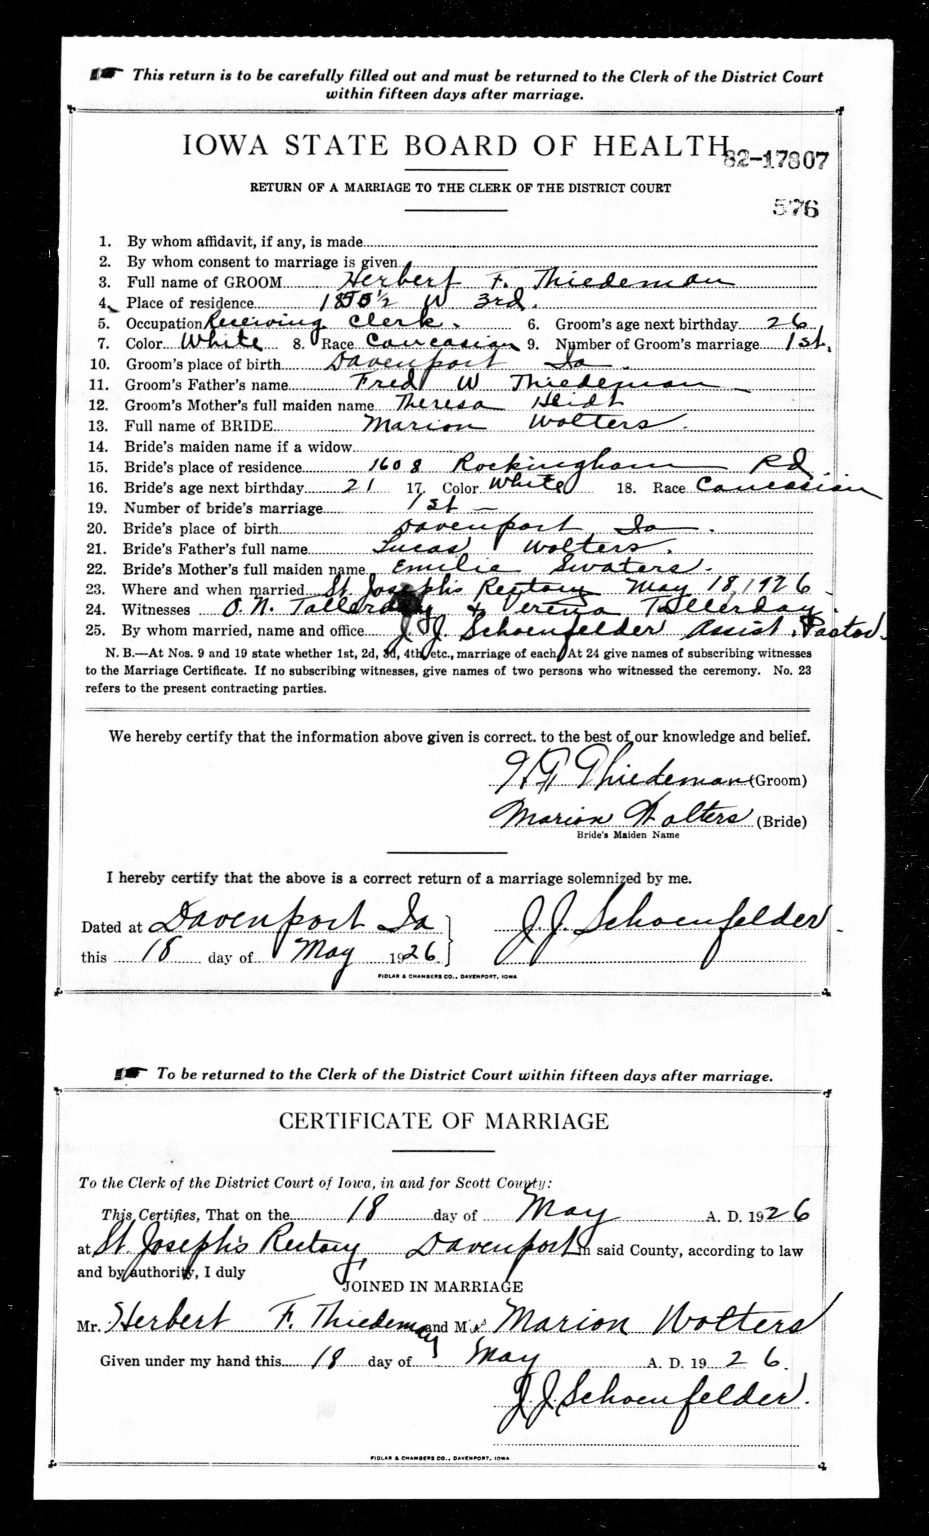 This return is to be carefully filled out and must be returned to the Clerk of the District Court
within fifteen days after marriage.
IOWA STATE BOARD OF HEALTH
82-17807
RETURN OF A MARRIAGE TO THE CLERK OF THE DISTRICT COURT
576
1. By whom affidavit, if any, is made
2. By whom consent to marriage is given
3. Full name of GROOM Herbert F. Thiedeman
4. Place of residence W 3rd.
5. Occupation Receiving Clerk. 6. Groom's age next birthday 26
7. Color White 8. Race Caucasian 9. Number of Groom's marriage 1st.
10. Groom's place of birth Davenport Ia.
11. Groom's Father's name Fred W Thiedeman
12. Groom's Mother's full maiden name Theresa Heidt
13. Full name of BRIDE Marion Wolters.
14. Bride's maiden name if a widow
15. Bride's place of residence 1608 Rockingham Rd
16. Bride's age next birthday 21 17. Color White 18. Race Caucasian
19. Number of bride's marriage 1st -
20. Bride's place of birth Davenport Ia.
21. Bride's Father's full name Lucas Wolters.
22. Bride's Mother's full maiden name Emilie Swaters.
23. Where and when married St Joseph's Rectory May 18, 1926.
24. Witnesses O. N. Tallerday & Verena Tallerday
25. By whom married, name and office J. J. Schoenfelder Assist. Pastor.
N. B.—At Nos. 9 and 19 state whether 1st, 2d, 3d, 4th, etc., marriage of each. At 24 give names of subscribing witnesses
to the Marriage Certificate. If no subscribing witnesses, give names of two persons who witnessed the ceremony. No. 23
refers to the present contracting parties.
We hereby certify that the information above given is correct. to the best of our knowledge and belief.
H F Thiedeman (Groom)
Marion Wolters (Bride)
Bride's Maiden Name
I hereby certify that the above is a correct return of a marriage solemnized by me.
Dated at Davenport Ia J. J. Schoenfelder.
this 18 day of May 1926
FIDLAR & CHAMBERS CO., DAVENPORT, IOWA
To be returned to the Clerk of the District Court within fifteen days after marriage.
CERTIFICATE OF MARRIAGE
To the Clerk of the District Court of Iowa, in and for Scott County:
This Certifies, That on the 18 day of May A. D. 1926
at St. Joseph's Rectory, Davenport in said County, according to law
and by authority, I duly
JOINED IN MARRIAGE
Mr. Herbert F. Thiedeman and Miss Marion Wolters
Given under my hand this 18 day of May A. D. 1926.
J. J. Schoenfelder.
FIDLAR & CHAMBERS CO., DAVENPORT, IOWA